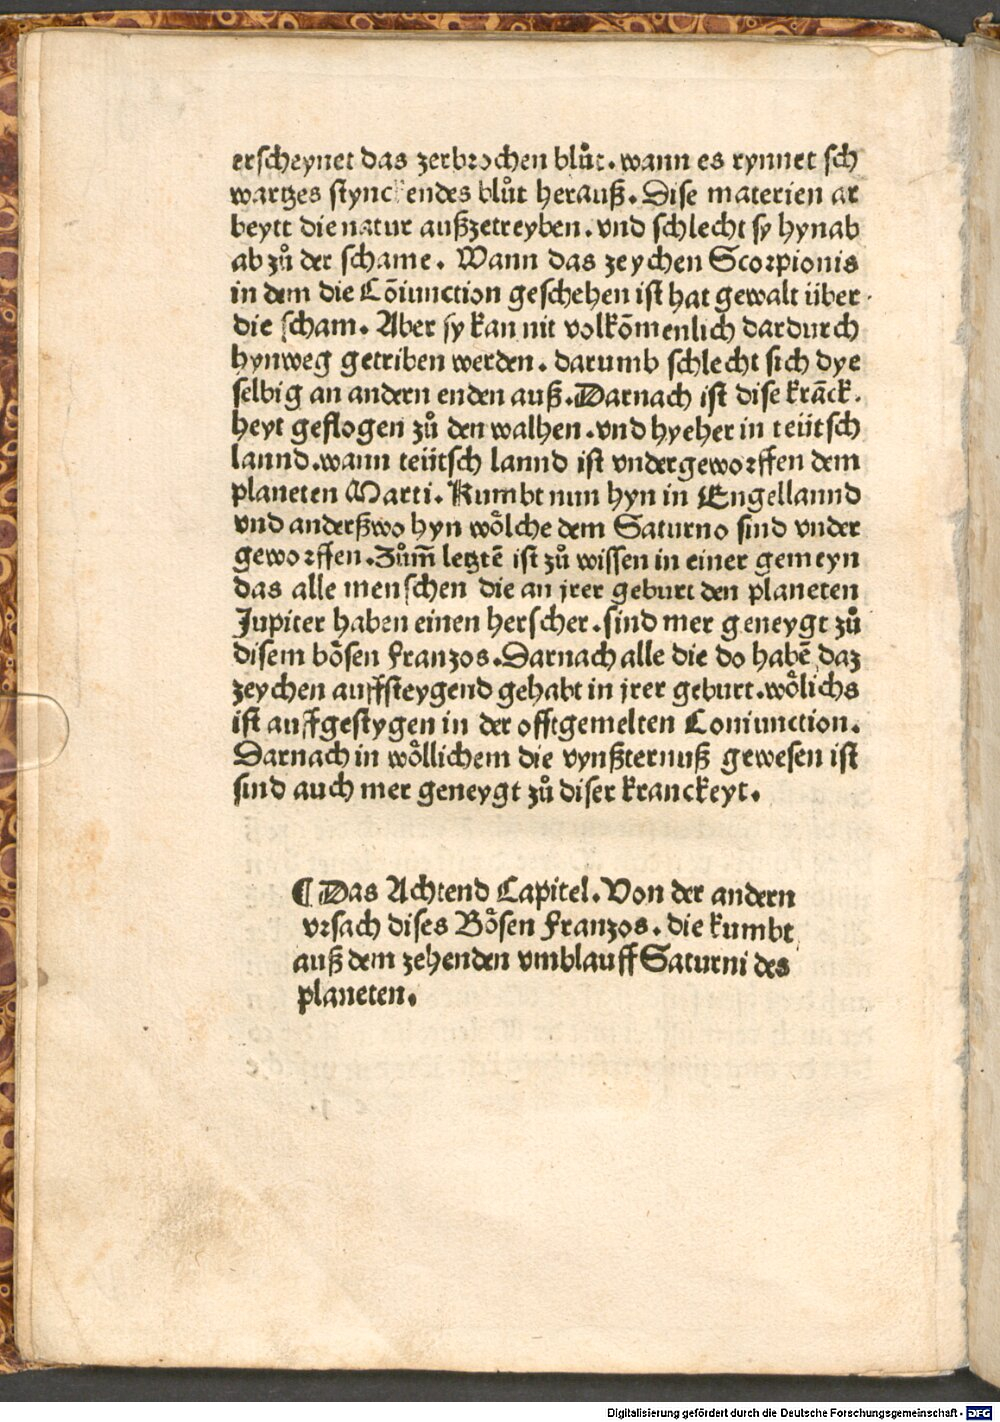 erscheynet das zerbrochen blůt. wann es rynnet sch
wartzes stynckendes blůt herauß. Dise materien ar
beytt die natur außzetreyben. vnd schlecht sy hynab
ab zů der schame. Wann das zeychen Scorpionis
in dem die Cōiunction geschehen ist hat gewalt über
die scham. Aber sy kan nit volkōmenlich dardurch
hynweg getriben werden. darumb schlecht sich dye
selbig an andern enden auß. Darnach ist dise krāck.
heyt geflogen zů den walhen. vnd hyeher in teütsch
lannd. wann teütsch lannd ist vndergeworffen dem
planeten Marti. Kumbt nun hyn in Engellannd
vnd anderßwo hyn woͤlche dem Saturno sind vnder
geworffen. Zům̄ letztē ist zů wissen in einer gemeyn
das alle menschen die an jrer geburt den planeten
Jupiter haben einen herscher. sind mer geneygt zů
disem boͤsen franzos. Darnach alle die do habē daz
zeychen auffsteygend gehabt in jrer geburt. woͤlichs
ist auffgestygen in der offtgemelten Coniunction.
Darnach in woͤllichem die vynßternuß gewesen ist
sind auch mer geneygt zů diser kranckeyt.
¶ Das Achtend Capitel. Von der andern
vrsach dises Boͤsen franzos. die kumbt
auß dem zehenden vmblauff Saturni des
planeten.
Digitalisierung gefördert durch die Deutsche Forschungsgemeinschaft - DFG